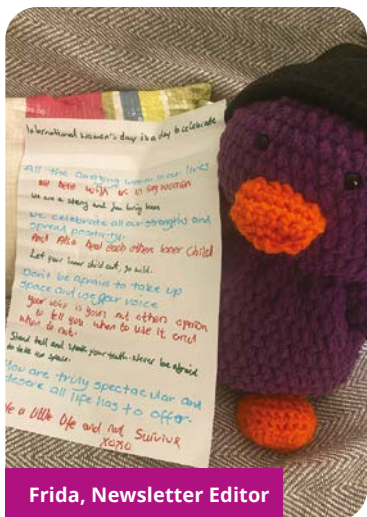 International Women's day is a day to celebrate
All the amazing women in our lives
are here with us in
We are a strong and
We celebrate all our strengths and
spread positivity.
And Also And each others inner child
Let your inner child out, go wild.
Don't be afraid to take up
space and use your voice
your voice is yours not others opinion
to tell you when to use it and
when to not.
Stand tall and speak your truth. Never be afraid
to take up space.
You are truly spectacular and
desere all life has to offer.
a little life and not Survive
xoxo
Frida, Newsletter Editor